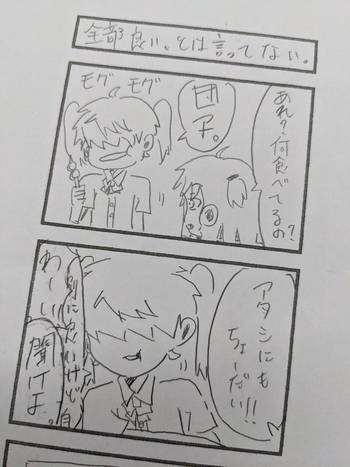 全部良い。とは言ってない。
あれ?何食べてるの?
団子。
モグ
モグ
アタシにも
ちょーだい!!
別に良いけど自
わーい
聞けよ。